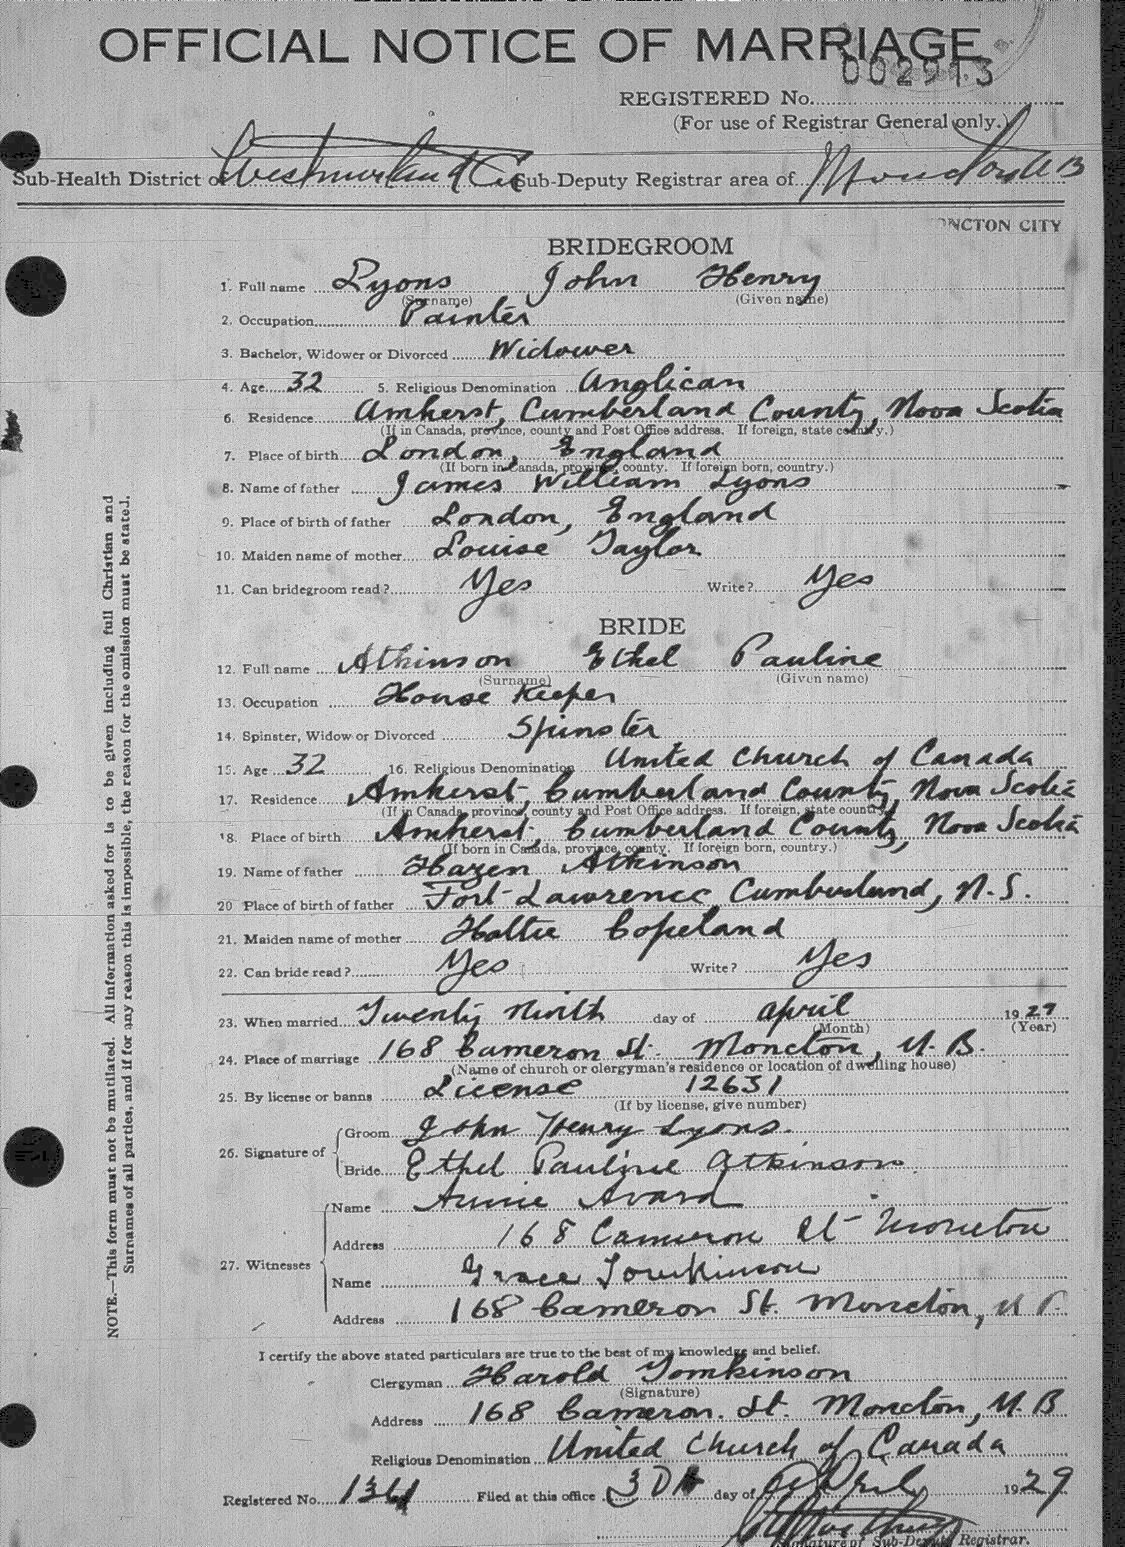 OFFICIAL NOTICE OF MARRIAGE
002913
REGISTERED No.
(For use of Registrar General only.)
Sub-Health District of Westmorland Co Sub-Deputy Registrar area of Moncton NB
MONCTON CITY
BRIDEGROOM
1. Full name Lyons John Henry
(Surname) (Given name)
2. Occupation Painter
3. Bachelor, Widower or Divorced Widower
4. Age 32 5. Religious Denomination Anglican
6. Residence Amherst, Cumberland County, Nova Scotia
(If in Canada, province, county and Post Office address. If foreign, state country.)
7. Place of birth London, England
(If born in Canada, province, county. If foreign born, country.)
8. Name of father James William Lyons
9. Place of birth of father London, England
10. Maiden name of mother Louise Taylor
11. Can bridegroom read? Yes Write? Yes
BRIDE
12. Full name Atkinson Ethel Pauline
(Surname) (Given name)
13. Occupation House Keeper
14. Spinster, Widow or Divorced Spinster
15. Age 32 16. Religious Denomination United Church of Canada
17. Residence Amherst, Cumberland County, Nova Scotia
(If in Canada, province, county and Post Office address. If foreign, state country.)
18. Place of birth Amherst, Cumberland County, Nova Scotia
(If born in Canada, province, county. If foreign born, country.)
19. Name of father Hazen Atkinson
20 Place of birth of father Fort Lawrence Cumberland, N.S.
21. Maiden name of mother Hattie Copeland
22. Can bride read? Yes Write? Yes
23. When married Twenty Ninth day of April 1929
(Month) (Year)
24. Place of marriage 168 Cameron St. Moncton, N.B.
(Name of church or clergyman's residence or location of dwelling house)
25. By license or banns License 12631
(If by license, give number)
26. Signature of
Groom John Henry Lyons.
Bride Ethel Pauline Atkinson.
27. Witnesses
Name Annie Avard
Address 168 Cameron St Moncton
Name Grace Tomkinson
Address 168 Cameron St. Moncton, N B.
I certify the above stated particulars are true to the best of my knowledge and belief.
Clergyman Harold Tomkinson
(Signature)
Address 168 Cameron. St. Moncton, N.B
Religious Denomination United Church of Canada
Registered No. 1361 Filed at this office 30 day of April 1929
Signature of Sub-Deputy Registrar.
NOTE.—This form must not be mutilated. All information asked for is to be given including full Christian and
Surnames of all parties, and if for any reason this is impossible, the reason for the omission must be stated.